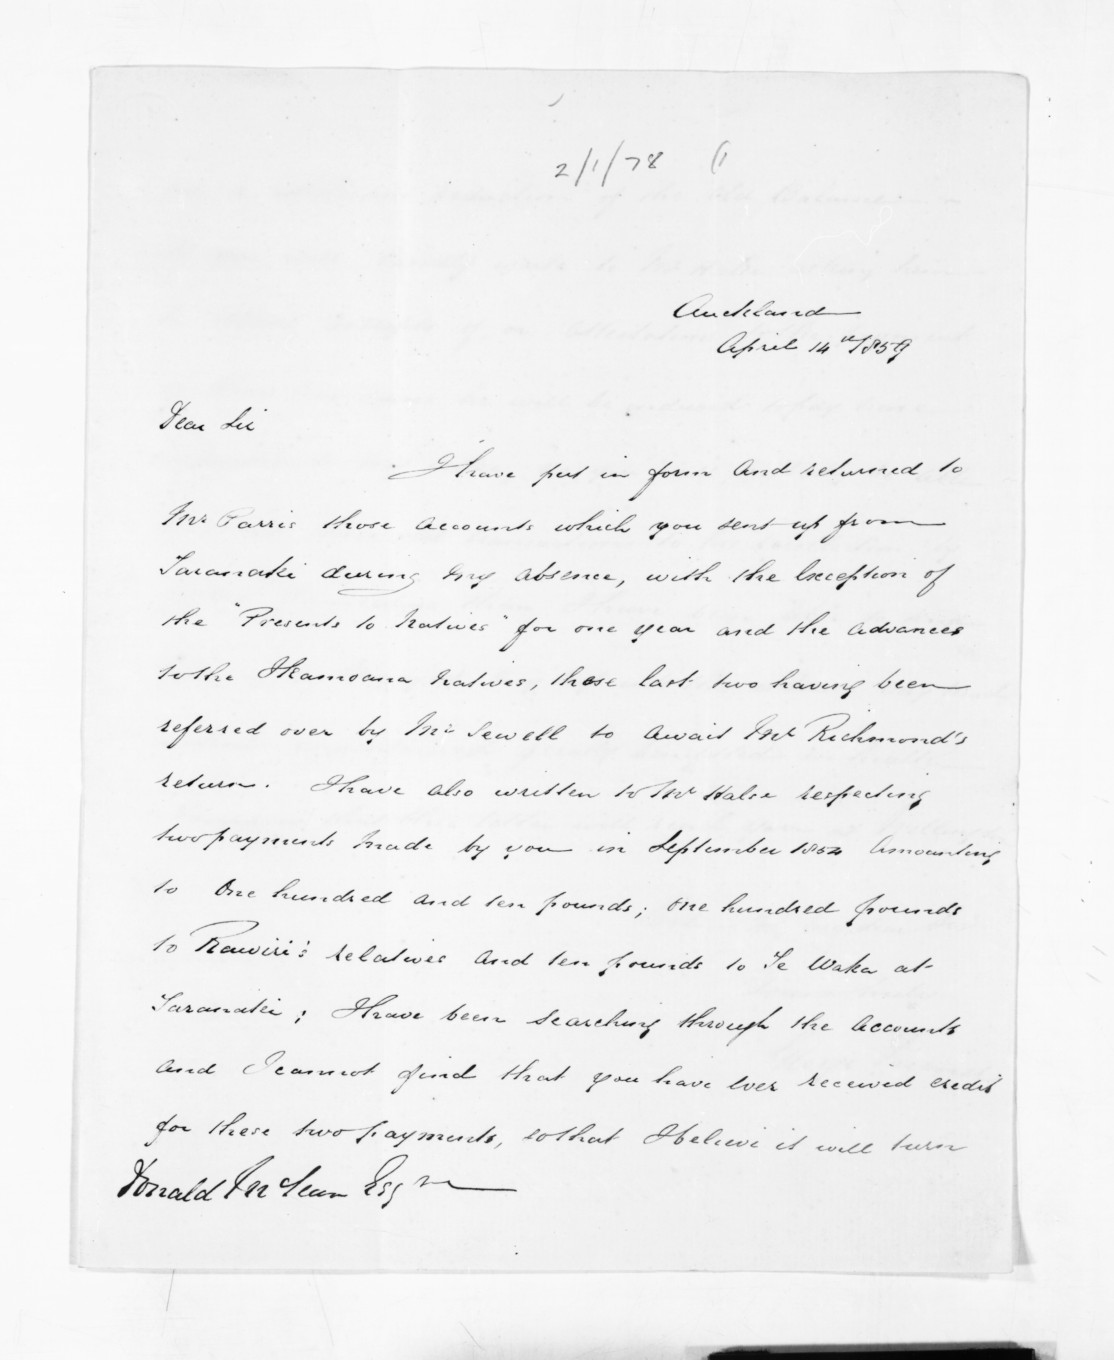 2/1/78 (1
Auckland
April 14th/1859
Dear Sir
I have put in form and returned to
Mr Parris those accounts which you sent up from
Taranaki during my absence, with the Exception of
the "Presents to Natives" for one year and the advances
to the Ikamoana Natives, these last two having been
referred over by Mr Sewell to await Mr Richmond's
return. I have also written to Mr Halse respecting
two payments made by you in September 1854 Amounting
to One hundred and ten pounds; one hundred pounds
to Rawiri's relatives and ten pounds to Te Waka at
Taranaki; I have been searching through the accounts
and I cannot find that you have ever received credit
for these two payments, so that I believe it will turn
Donald McLean Esqre